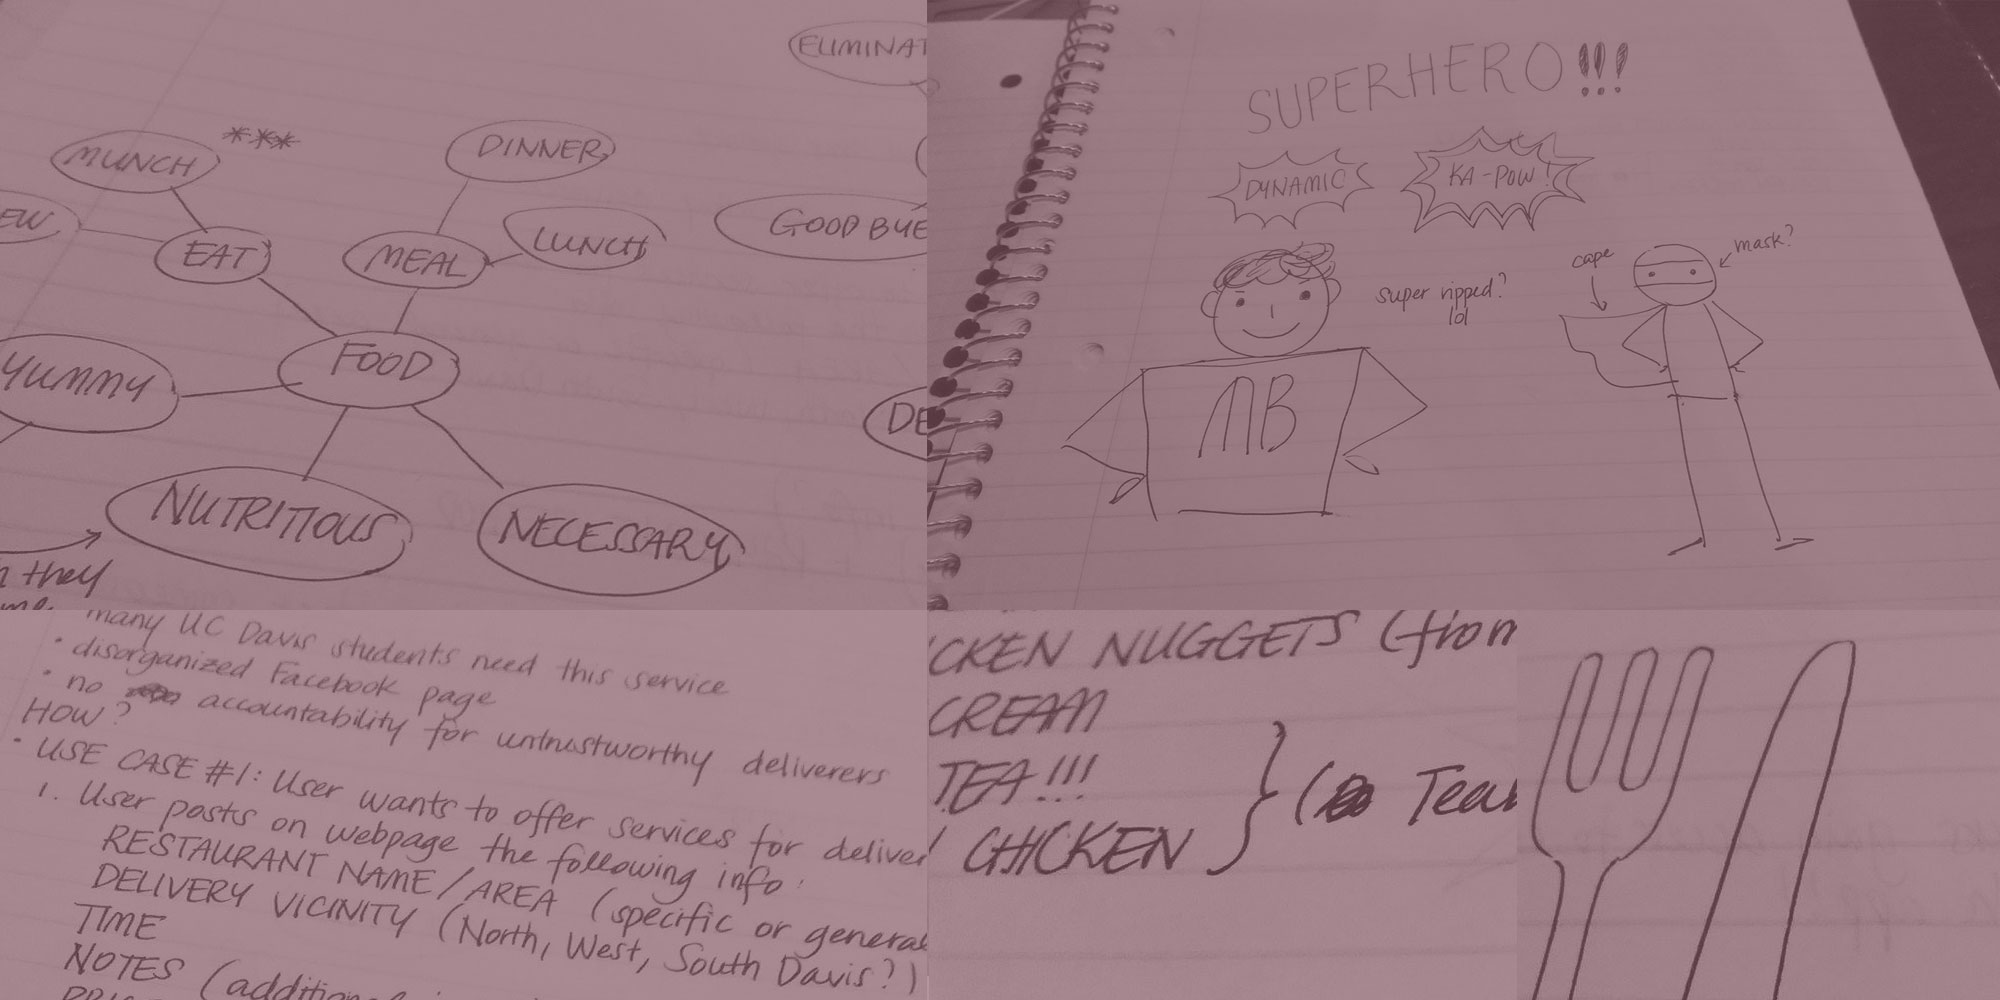 MUNCH ***
DINNER
EAT
MEAL
LUNCH
GOOD BYE
YUMMY
FOOD
NUTRITIOUS
NECESSARY
they
SUPERHERO!!!
DYNAMIC
KA-POW!
cape
mask?
super ripped?
lol
MB
many UC Davis students need this service
• disorganized Facebook page
• no accountability for untrustworthy deliverers
HOW?
• USE CASE #1: User wants to offer services for
1. User posts on webpage the following info:
RESTAURANT NAME/AREA (specific or general
DELIVERY VICINITY (North, West, South Davis?)
TIME
NOTES
NUGGETS (from
CREAM
TEA!!!
CHICKEN